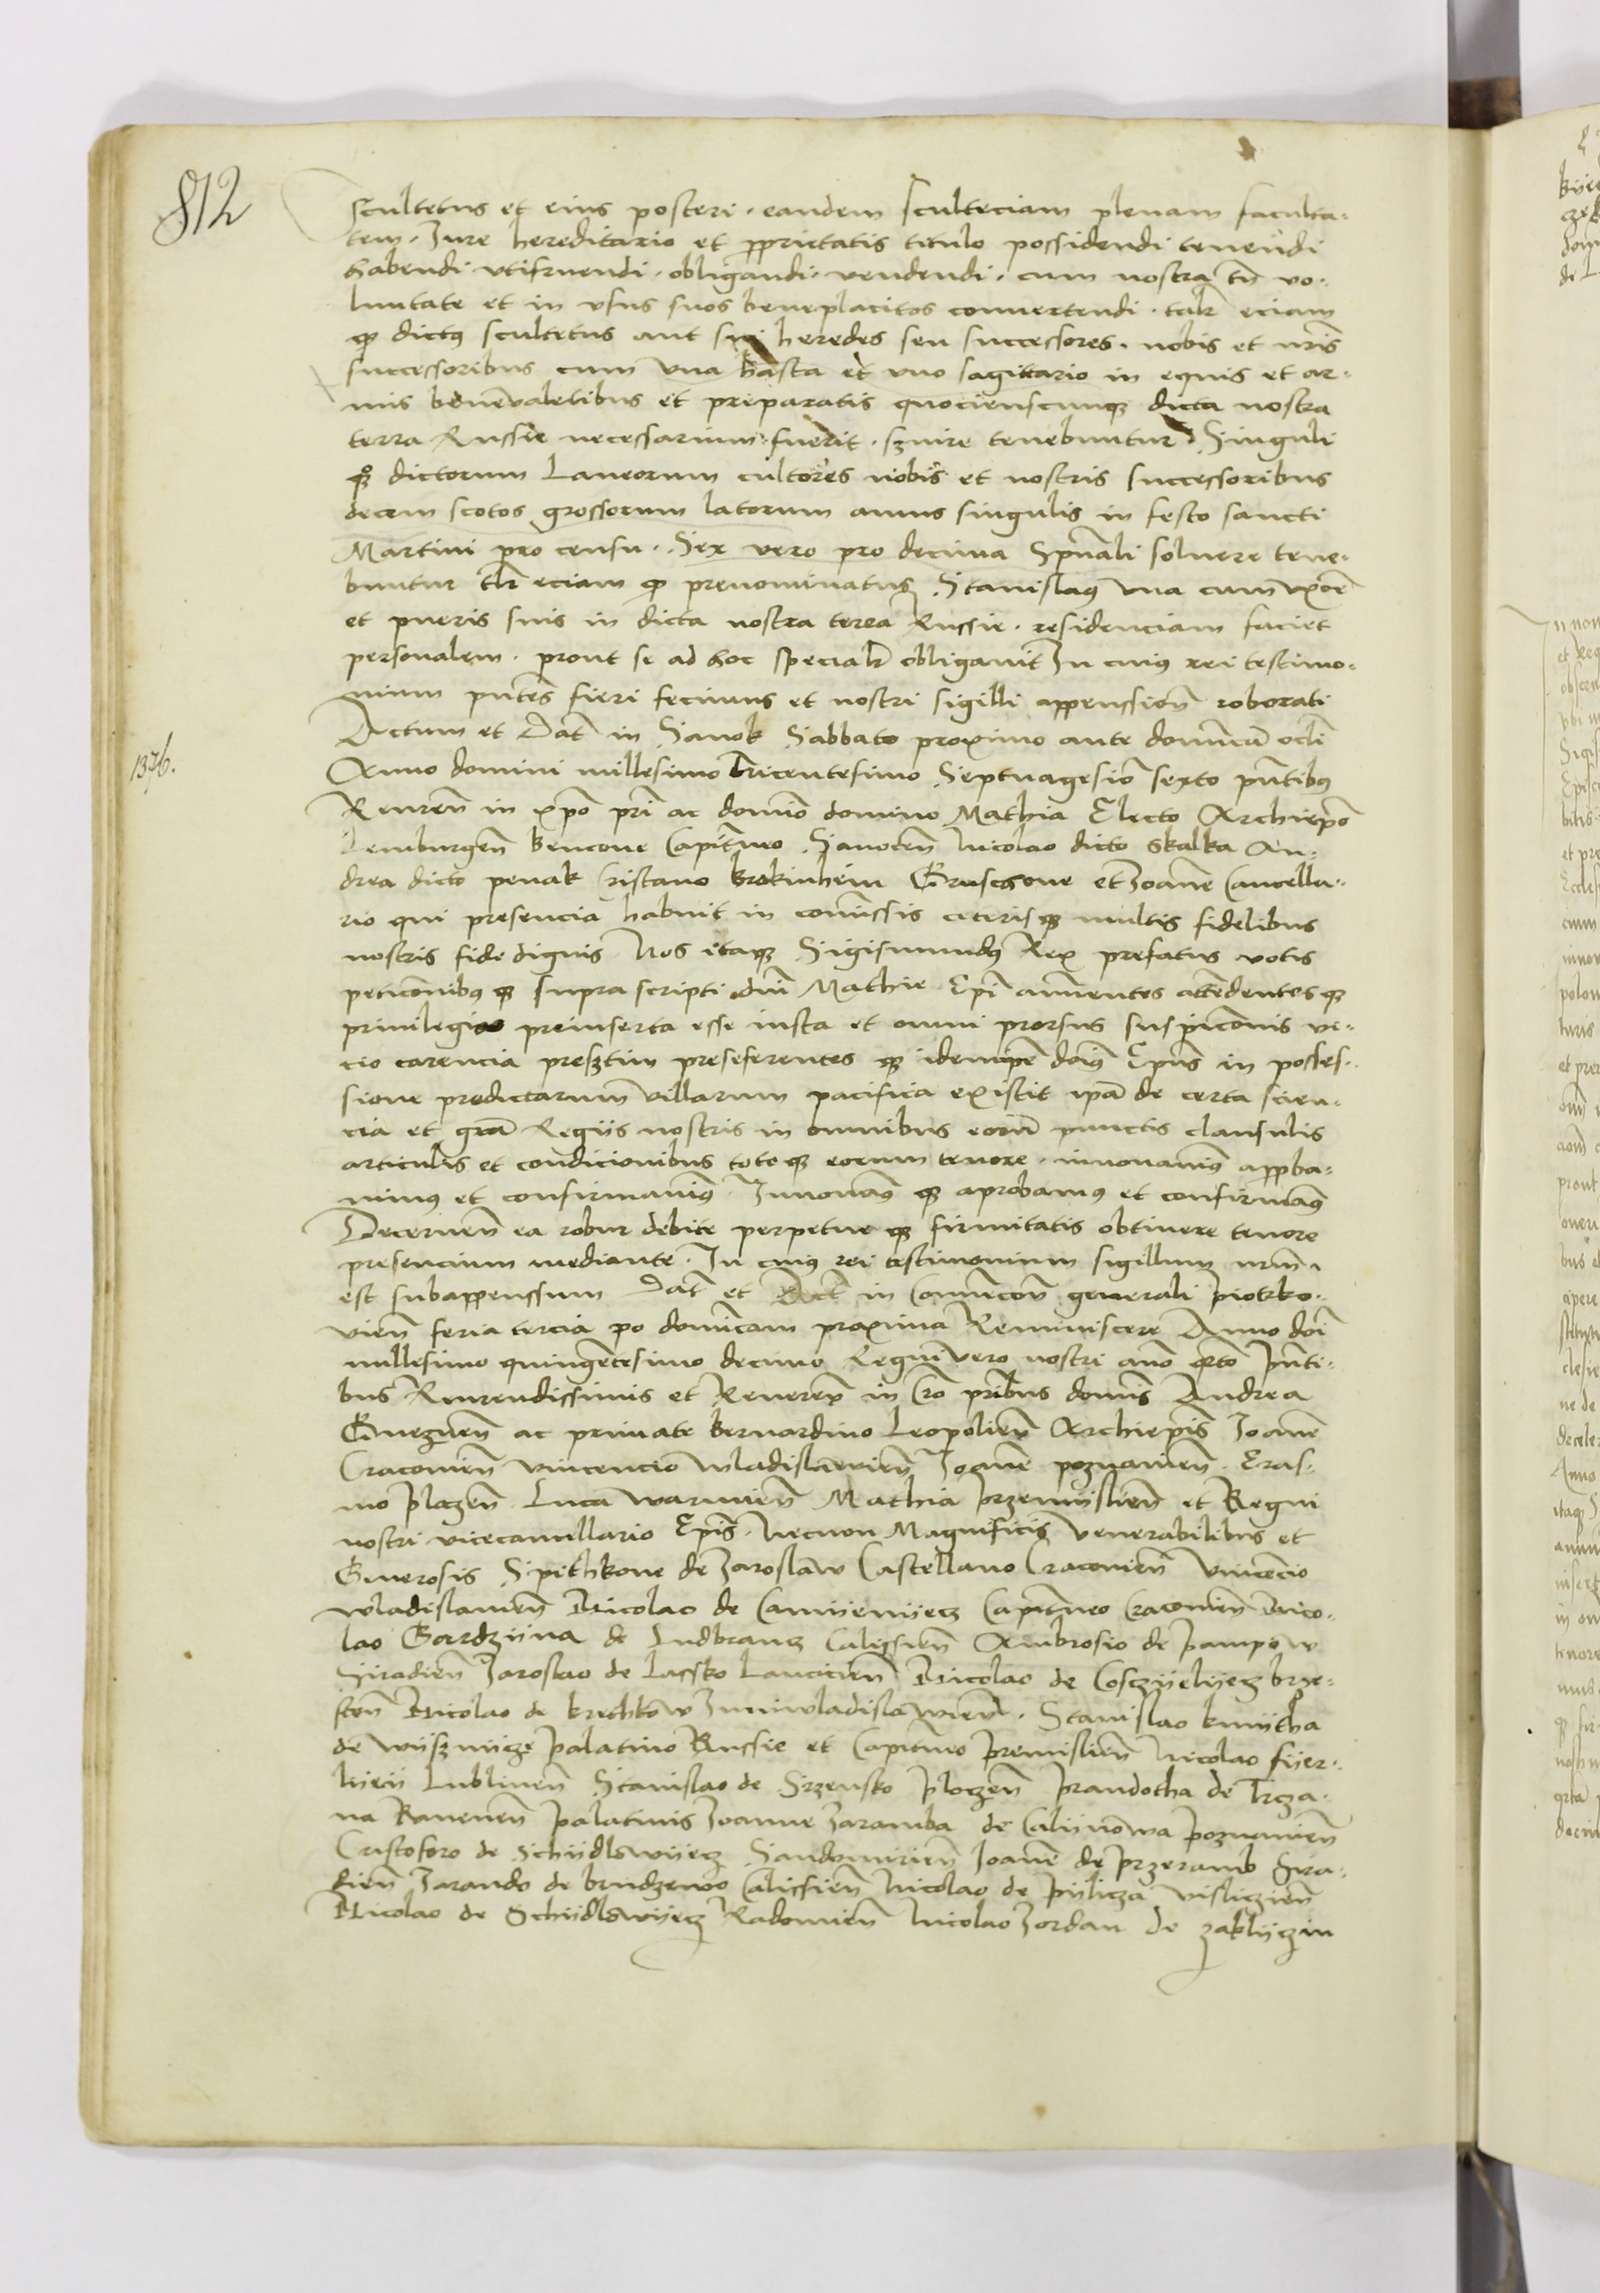 812
scultetus et eius posteri. eandem sculteciam plenam faculta-
tem. Iure hereditario et pprietatis titulo possidendi tenendi
habendi utifruendi. obligandi. vendendi. cum nostra tn vo-
luntate et in vsus suos beneplacitos convertendi. talr eciam
q dictus scultetus aut sui heredes seu successores. nobis et nris
successoribus cum vna hasta et vno sagittario in equis et ar-
mis benevaletibus et preparatis quocienscunq dicta nostra
terra Russie necessarium fuerit. servire tenebuntur Singuli
dictorum Laneorum cultores nobis et nostris successoribus
decem scotos grossorum latorum annis singulis in festo sancti
Martini pro censu. Sex vero pro decima Spuali soluere tene-
buntur tlr eciam q prenominatus Stanislaus vna cum vxore
et pueris suis in dicta nostra terra Russie. residenciam faciet
personalem. prout se ad hoc specialr obligauit In cuius rei testimo-
nium pntes fieri fecimus et nostri sigilli appenssion roborati
Actum et Dat in Sanok Sabbato proximo ante domicam ocli
1376.
Anno domini millesimo tricentesimo Septuagesio sexto pntibus
Reuren in xpo pri ac domio domino Mathia Electo Archiepo
Lemburgen bencone Capitneo Sanocen Nicolao dicto skalka An-
drea dicto penak Cristano brokinhein Gruschone et Ioane Cancella-
rio qui presencia habuit in comissis ceterisq multis fidelibus
nostris fide dignis Nos itaq Sigismundus Rex prefatus votis
peticonibus q supra scripti dni Mathie Epi annuentes attendentes q
priuilegia preinserta esse iusta et omni prorsus suspiconis vi-
cio carencia presertim preseferentes q idemipe dominus Epus in posses-
sione predictarum villarum pacifica existit ipa de certa scien-
cia et gra Regiis nostris in omnibus eorum punctis clausulis
articulis et condicionibus toto q eorum tenore. innouauimus approba-
uimus et confirmauimus. Innouamus q aprobamus et confirmamus
Decernen ea robur debite perpetue q firmitatis obtinere tenore
presencium mediante. In cuius rei testimonium sigillum nrm
est subappenssum Dat et Act in Conuencon generali piotrko-
vien feria tercia po domicam proxima Reminiscere Anno doi
millesimo quingetesimo decimo Regni vero nostri ano qrto Pnti-
bus Reurendissimis et Reueren in Cro pribus domis Andrea
Gneznen ac primate bernardino Leopolien Archiepis Ioane
Cracouien vincencio wladislauien Ioane poznanien. Eras-
mo plozen Luca warmien Mathia przemislien et Regni
nostri vicecancellario Epis. Necnon Magnificis venerabilibus et
Generosis Spithkone de Iaroslaw Castellano Cracouien Vincecio
wladislauien Nicolao de Camyenyecz Capitneo Cracouien Nico-
lao Gardzyna de Ludbrancz Calissien Ambrosio de pampow
Syradien Iaroslao de Lassko Lancicien Nicolao de Cosczyelyecz brze-
sten Nicolao de krethkow Iuniwladislawien. Stanislao kmytha
de wysznycze Palatino Russie et Capitneo premislien Nicolao fyr-
lyey Lublinen Stanislao de Srzensko plozen prandotha de Trcza-
na Rauenen Palatinis Ioanne Zaramba de Calynowa poznanien
Cristoforo de Schydlowyecz Sandomirien Ioane de przeramb Sira-
dien Iarando de brudzewo Calissien Nicolao de pylicza visliczien
Nicolao de Schydlowyecz Radomien Nicolao Iordan de zaklyczin